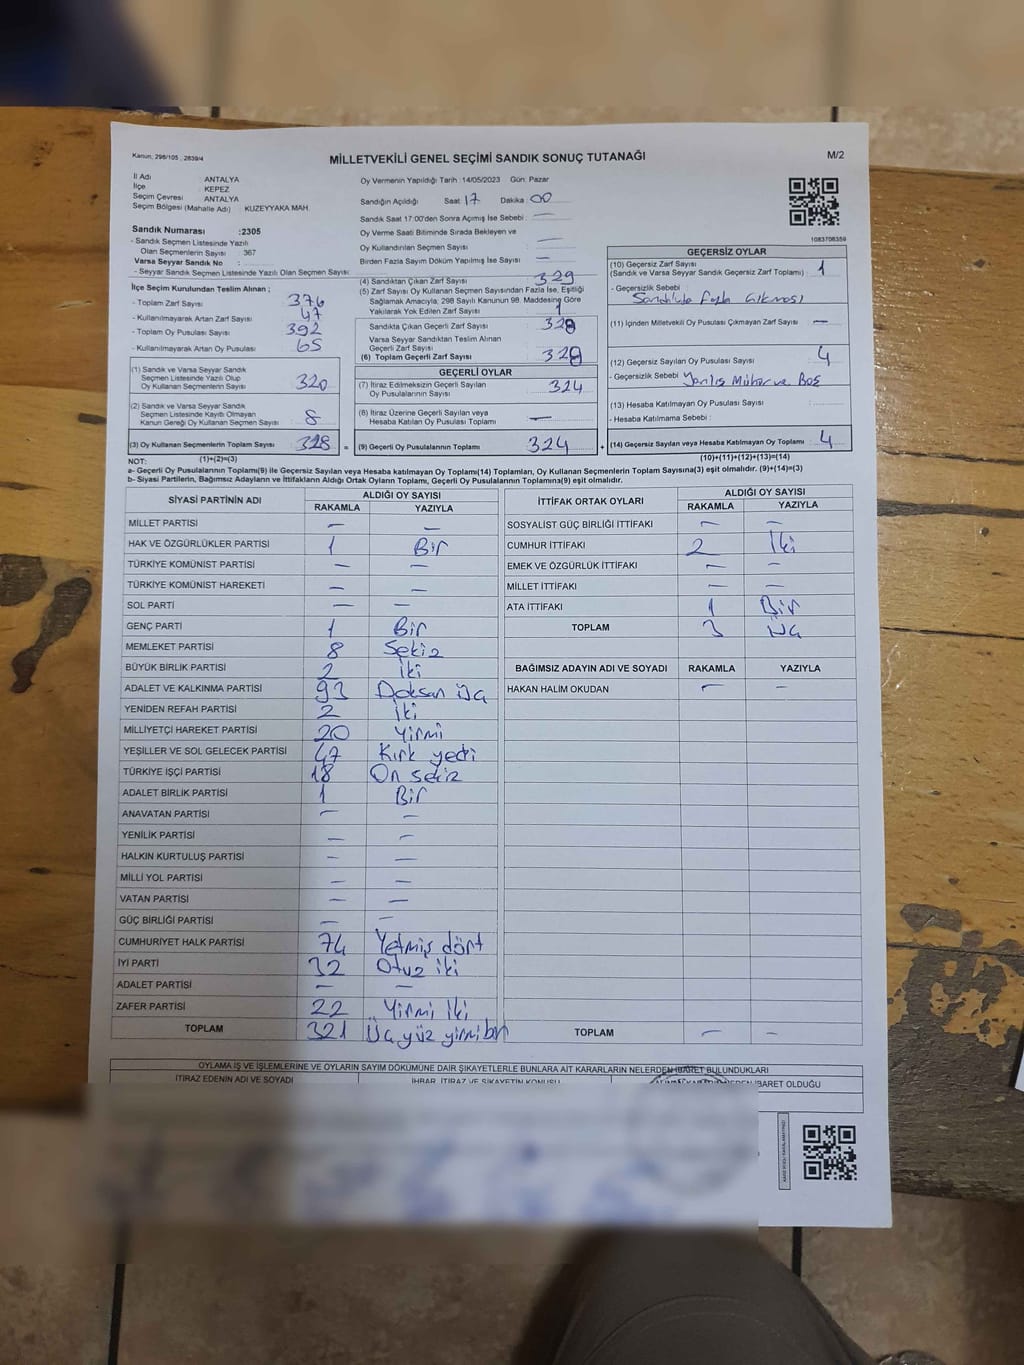 Kanun; 298/105 , 2839/4
MİLLETVEKİLİ GENEL SEÇİMİ SANDIK SONUÇ TUTANAĞI
M/2
İl Adı : ANTALYA
İlçe : KEPEZ
Seçim Çevresi : ANTALYA
Seçim Bölgesi (Mahalle Adı) : KUZEYYAKA MAH.
Oy Vermenin Yapıldığı Tarih :14/05/2023 Gün: Pazar
Sandığın Açıldığı Saat 17 Dakika 00
Sandık Saat 17:00'den Sonra Açımış İse Sebebi : —
Oy Verme Saati Bitiminde Sırada Bekleyen ve
Oy Kullandırılan Seçmen Sayısı : —
Birden Fazla Sayım Döküm Yapılmış İse Sayısı : —
1083706359
Sandık Numarası :2305
- Sandık Seçmen Listesinde Yazılı
Olan Seçmenlerin Sayısı : 367
Varsa Seyyar Sandık No :
- Seyyar Sandık Seçmen Listesinde Yazılı Olan Seçmen Sayısı :
İlçe Seçim Kurulundan Teslim Alınan ;
- Toplam Zarf Sayısı : 376
- Kullanılmayarak Artan Zarf Sayısı : 47
- Toplam Oy Pusulası Sayısı : 392
- Kullanılmayarak Artan Oy Pusulası : 65
(1) Sandık ve Varsa Seyyar Sandık
Seçmen Listesinde Yazılı Olup
Oy Kullanan Seçmenlerin Sayısı : 320
(2) Sandık ve Varsa Seyyar Sandık
Seçmen Listesinde Kayıtlı Olmayan
Kanun Gereği Oy Kullanan Seçmen Sayısı : 8
(3) Oy Kullanan Seçmenlerin Toplam Sayısı : 328
(1)+(2)=(3)
(4) Sandıktan Çıkan Zarf Sayısı : 329
(5) Zarf Sayısı Oy Kullanan Seçmen Sayısından Fazla İse, Eşitliği
Sağlamak Amacıyla, 298 Sayılı Kanunun 98. Maddesine Göre
Yakılarak Yok Edilen Zarf Sayısı : 1
Sandıkta Çıkan Geçerli Zarf Sayısı : 328
Varsa Seyyar Sandıktan Teslim Alınan
Geçerli Zarf Sayısı :
(6) Toplam Geçerli Zarf Sayısı : 328
GEÇERLİ OYLAR
(7) İtiraz Edilmeksizin Geçerli Sayılan
Oy Pusulasının Sayısı : 324
(8) İtiraz Üzerine Geçerli Sayılan veya
Hesaba Katılan Oy Pusulası Toplamı : —
= (9) Geçerli Oy Pusulalarının Toplamı : 324
GEÇERSİZ OYLAR
(10) Geçersiz Zarf Sayısı
(Sandık ve Varsa Seyyar Sandık Geçersiz Zarf Toplamı) : 1
- Geçersizlik Sebebi :
Sandıkta Fazla Çıkması
(11) İçinden Milletvekili Oy Pusulası Çıkmayan Zarf Sayısı : —
(12) Geçersiz Sayılan Oy Pusulası Sayısı : 4
- Geçersizlik Sebebi : Yanlış Mühür ve Boş
(13) Hesaba Katılmayan Oy Pusulası Sayısı :
- Hesaba Katılmama Sebebi :
+ (14) Geçersiz Sayılan veya Hesaba Katılmayan Oy Toplamı : 4
(10)+(11)+(12)+(13)=(14)
NOT:
a- Geçerli Oy Pusulalarının Toplamı(9) ile Geçersiz Sayılan veya Hesaba katılmayan Oy Toplamı(14) Toplamları, Oy Kullanan Seçmenlerin Toplam Sayısına(3) eşit olmalıdır. (9)+(14)=(3)
b- Siyasi Partilerin, Bağımsız Adayların ve İttifakların Aldığı Ortak Oyların Toplamı, Geçerli Oy Pusulalarının Toplamına(9) eşit olmalıdır.
SİYASİ PARTİNİN ADI ALDIĞI OY SAYISI
RAKAMLA YAZIYLA
MİLLET PARTİSİ — —
HAK VE ÖZGÜRLÜKLER PARTİSİ 1 Bir
TÜRKİYE KOMÜNİST PARTİSİ — —
TÜRKİYE KOMÜNİST HAREKETİ — —
SOL PARTİ — —
GENÇ PARTİ 1 Bir
MEMLEKET PARTİSİ 8 Sekiz
BÜYÜK BİRLİK PARTİSİ 2 İki
ADALET VE KALKINMA PARTİSİ 93 Doksan Üç
YENİDEN REFAH PARTİSİ 2 İki
MİLLİYETÇİ HAREKET PARTİSİ 20 Yirmi
YEŞİLLER VE SOL GELECEK PARTİSİ 47 Kırk yedi
TÜRKİYE İŞÇİ PARTİSİ 18 On sekiz
ADALET BİRLİK PARTİSİ 1 Bir
ANAVATAN PARTİSİ — —
YENİLİK PARTİSİ — —
HALKIN KURTULUŞ PARTİSİ — —
MİLLİ YOL PARTİSİ — —
VATAN PARTİSİ — —
GÜÇ BİRLİĞİ PARTİSİ — —
CUMHURİYET HALK PARTİSİ 74 Yetmiş dört
İYİ PARTİ 32 Otuz iki
ADALET PARTİSİ — —
ZAFER PARTİSİ 22 Yirmi İki
TOPLAM 321 Üç yüz yirmi bir
İTTİFAK ORTAK OYLARI ALDIĞI OY SAYISI
RAKAMLA YAZIYLA
SOSYALİST GÜÇ BİRLİĞİ İTTİFAKI — —
CUMHUR İTTİFAKI 2 İki
EMEK VE ÖZGÜRLÜK İTTİFAKI — —
MİLLET İTTİFAKI — —
ATA İTTİFAKI 1 Bir
TOPLAM 3 Üç
BAĞIMSIZ ADAYIN ADI VE SOYADI RAKAMLA YAZIYLA
HAKAN HALİM OKUDAN — —
TOPLAM — —
OYLAMA İŞ VE İŞLEMLERİNE VE OYLARIN SAYIM DÖKÜMÜNE DAİR ŞİKAYETLERLE BUNLARA AİT KARARLARIN NELERDEN İBARET BULUNDUKLARI
İTİRAZ EDENİN ADI VE SOYADI İHBAR, İTİRAZ VE ŞİKAYETİN KONUSU İBARET OLDUĞU